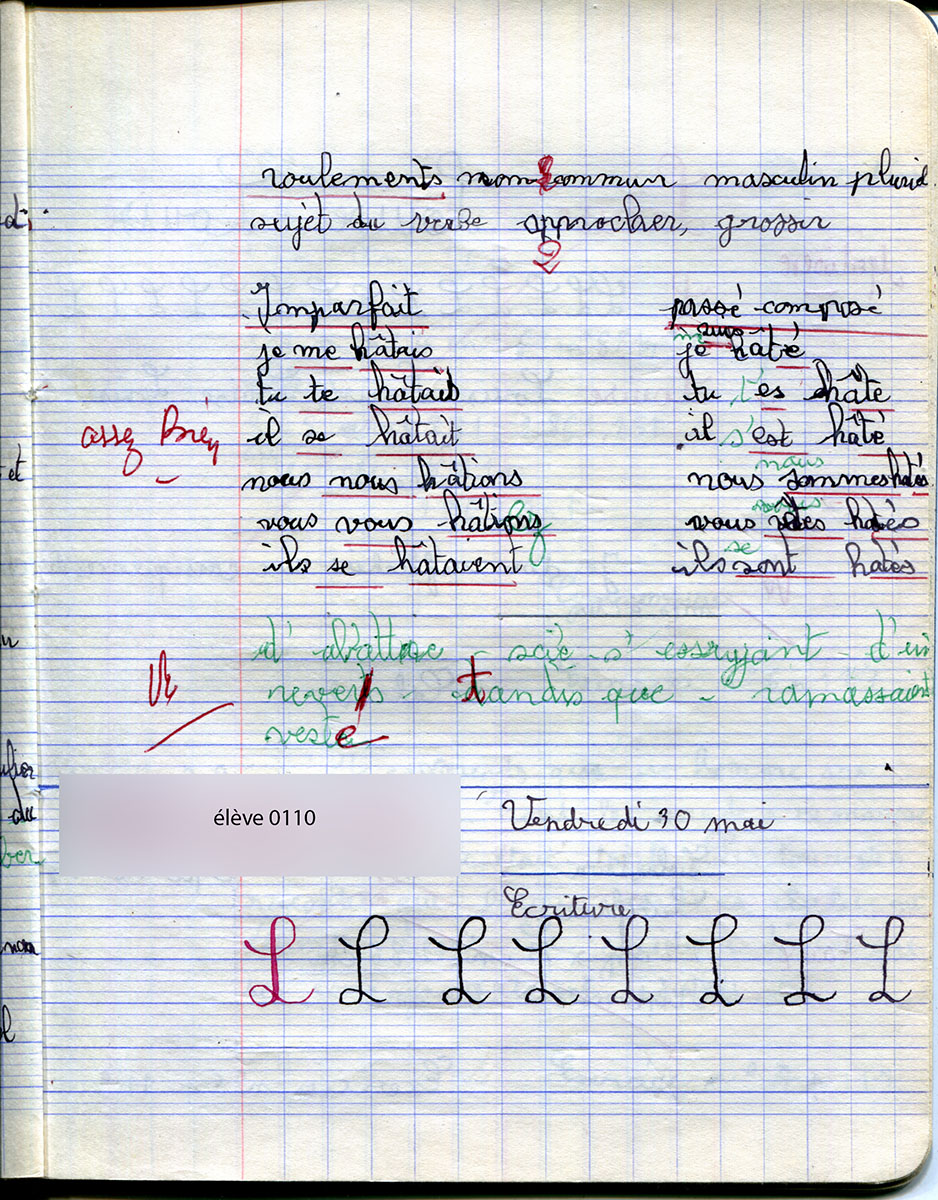 roulements nom commun masculin pluriel
sujet du verbe approcher, grossir
2
Imparfait passé composé
je me hâtais je me suis hâté
tu te hâtais tu t'es hâté
assez Bien il se hâtait il s'est hâté
nous nous hâtions nous nous sommes hatés
vous vous hâtions ez vous vous êtes hatés
ils se hâtavent ils se sont hatés
d'abattre - scie - s'essuyant - d'un
Vu revers - tandis que - ramassaient
veste
élève 0110
Vendredi 30 mai
Ecriture
L L L L L L L L